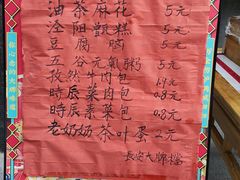 油茶麻花 5元
泾阳甑糕 5元
豆腐脑 5元
五谷元氣粥 5元
孜然牛肉包 1.9元
時辰菜肉包 0.8元
時辰素菜包 0.8元
老奶奶茶叶蛋 2元
長安大牌檔